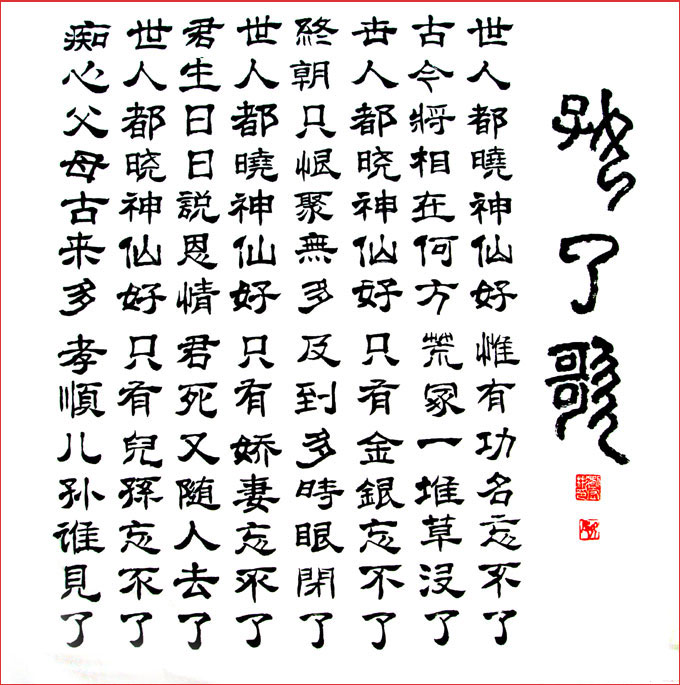 好了歌
世人都曉神仙好惟有功名忘不了
古今將相在何方荒冢一堆草没了
世人都晓神仙好只有金銀忘不了
終朝只恨聚無多及到多時眼閉了
世人都曉神仙好只有娇妻忘不了
君生日日説恩情君死又随人去了
世人都晓神仙好只有兒孫忘不了
痴心父母古来多孝順儿孙谁見了